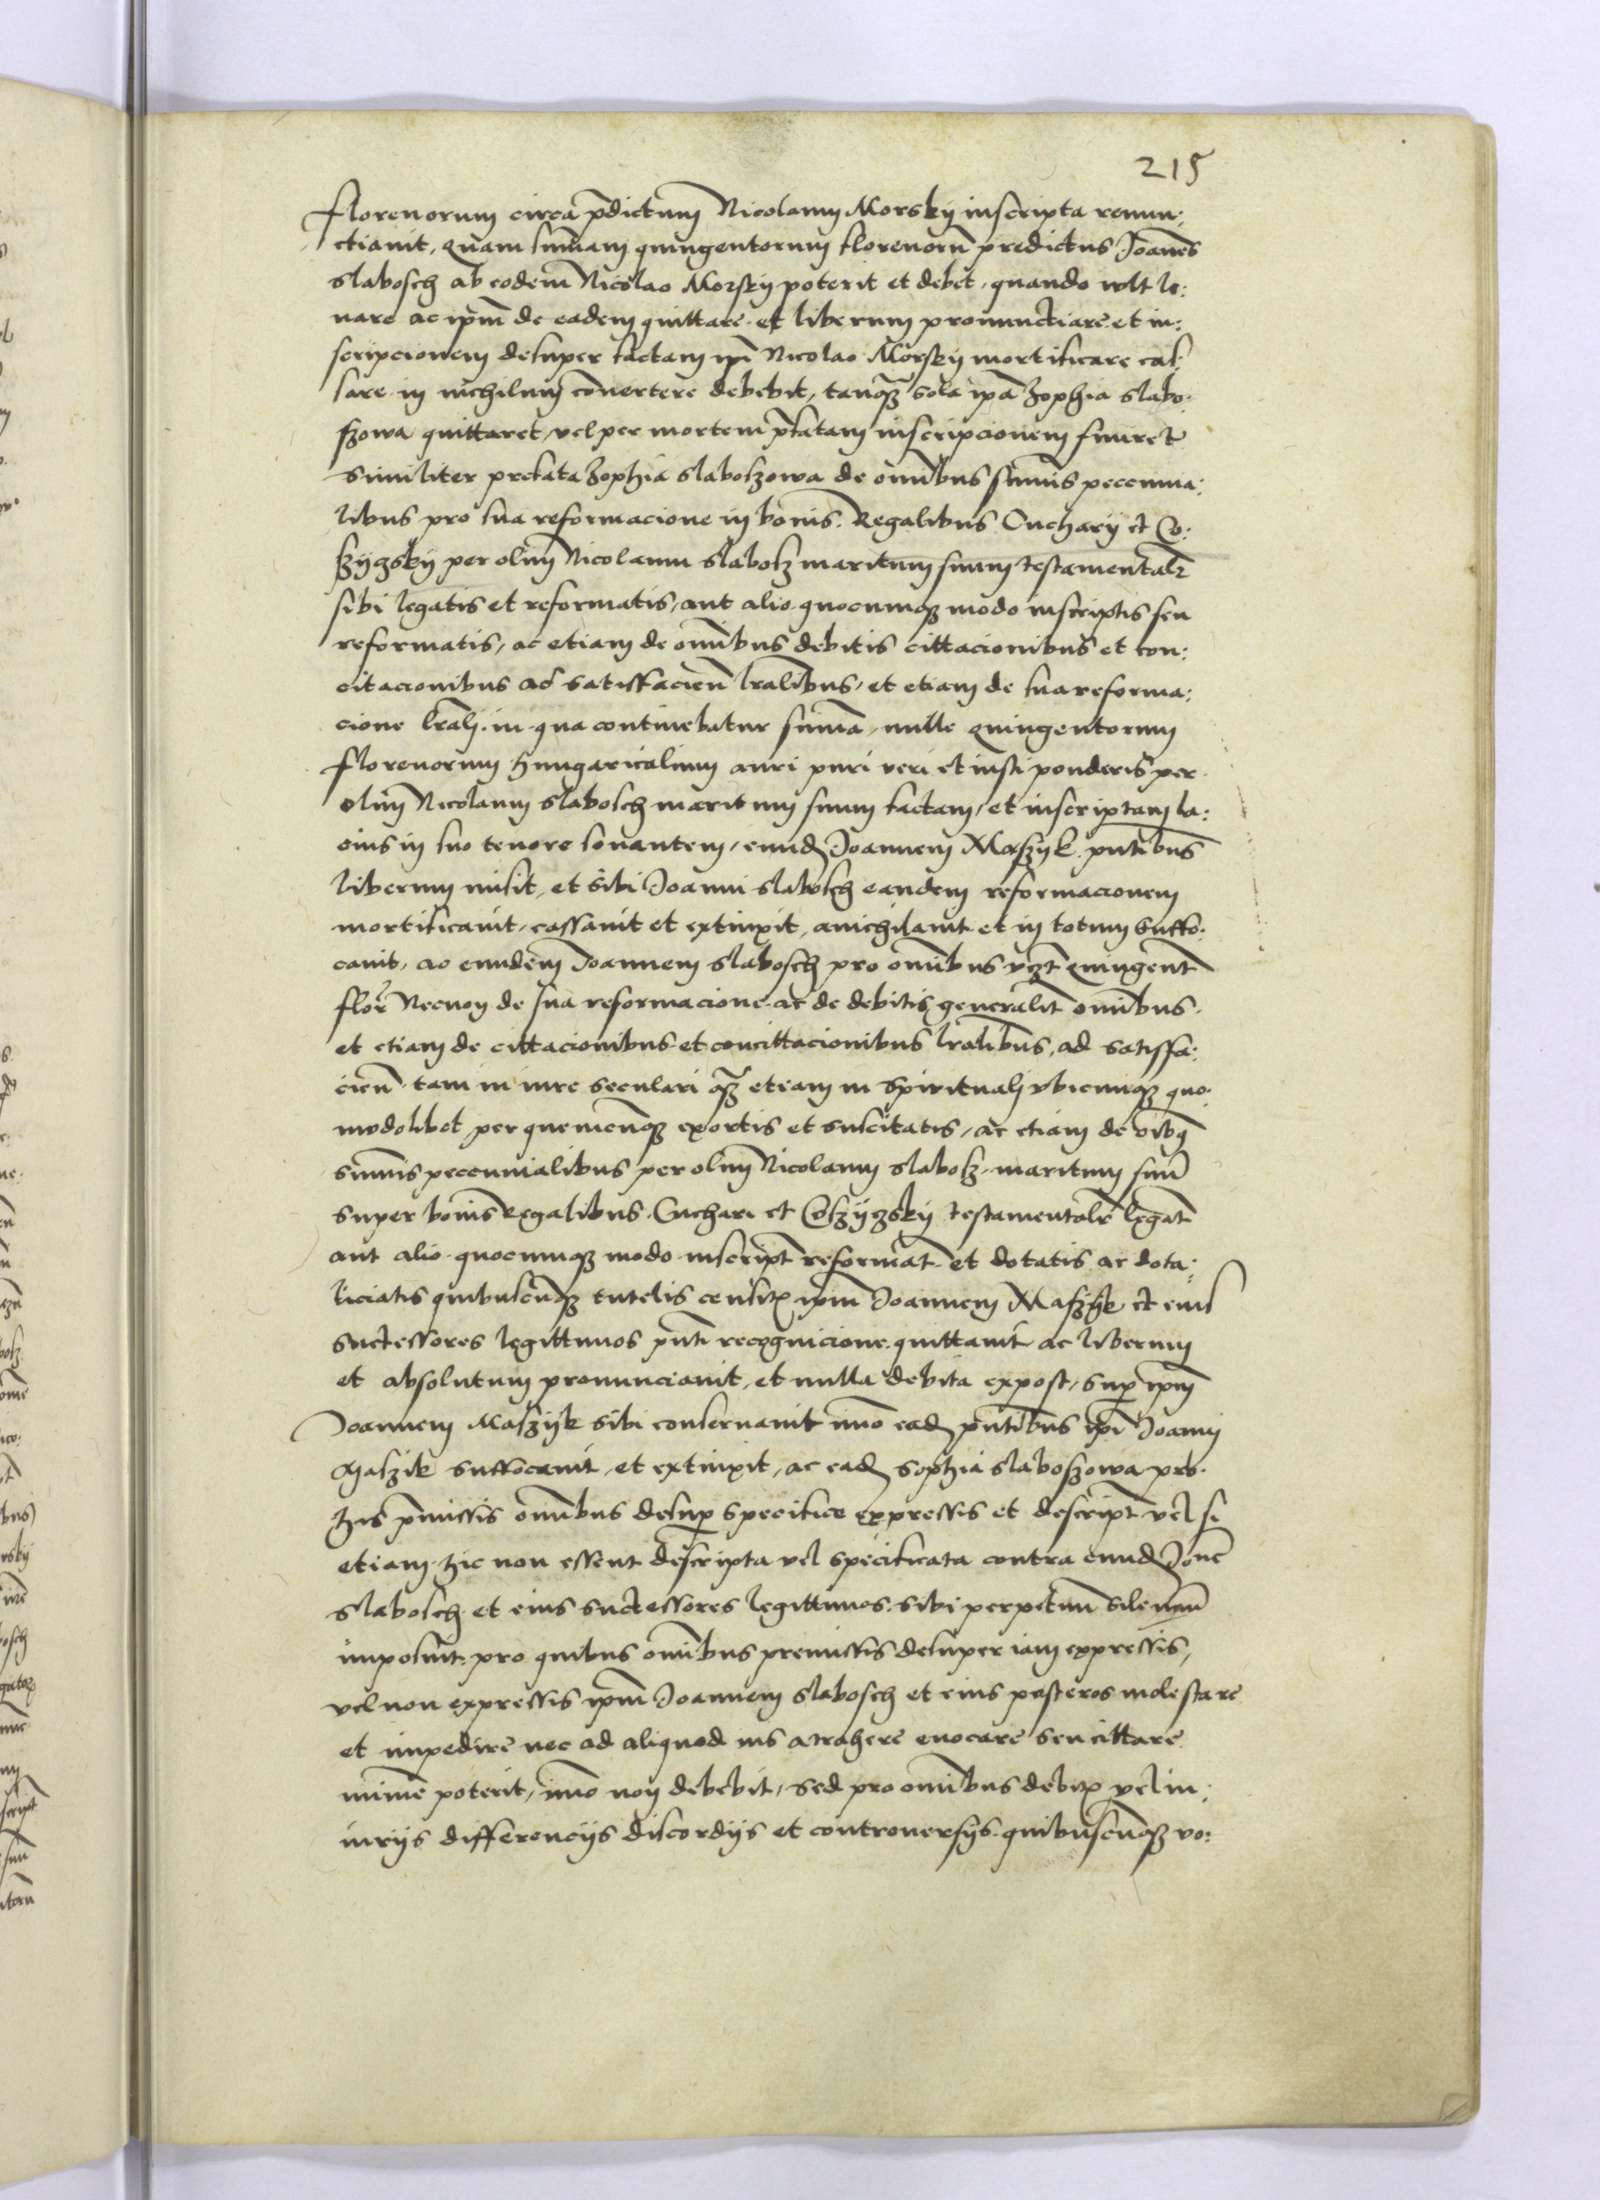 215
florenorum circa pdictum Nicolaum Morskÿ inscripta renun:
ctiavit, quam summam quingentorum florenorū predictus Joanēs
slabosch ab eodem Nicolao Morskÿ poterit et debet, quando wlt le:
vare ac ipm̄ de eadem quittare et liberum pronunctiare et in:
scripcionem desuper factam ipī Nicolao Morskÿ mortificare cas
sare in nichilum cōvertere debebit, tanqȝ sola ipā Zophia slabo:
szowa quittaret, vel per mortem pfatam inscripcionem finiret
Similiter prefata Zophia slaboszowa de omībus sum̄is peccunia:
libus pro sua reformacione in bonis Regalibus Cucharÿ et Co:
szÿczskÿ per olim Nicolaum slabosz maritum suum testamentalr̄
sibi legatis et reformatis, aut alio quocumqȝ modo inscriptis seu
reformatis, ac etiam de omībus debitis cittacionibus et con:
citacionibus ad satisfacien̄ lr̄alibus, et etiam de sua reforma:
cione lr̄ali in qua continebatur sum̄a mille quingentorum
florenorum hungaricalium auri puri veri et iusti ponderis per
olim Nicolaum slabosch maritum suum factam, et inscriptam la:
cius in suo tenore sonantem, eund Joannem Maszÿk pn̄tibus
liberum misit, et sibi Joanni slabosch eandem reformacionem
mortificavit, cassavit et extinxit, anichilavit et in totum suffo:
cavit, ac eundem Joannem slabosch pro omībus vz̄t quingent̄
flor̄ Necnon de sua reformacione ac de debitis generalit̄ omībus
et etiam de cittacionibus et concittacionibus lr̄alibus, ad satisfa:
cien̄ tam in iure seculari qȝ etiam in spirituali vbicumqȝ quo:
modolibet per quemcūqȝ exortis et suscitatis, ac etiam de
sum̄is peccunialibus per olim Nicolaum slabosz maritum suū
super bonis Regalibus Cuchari et Coszÿczskÿ testamentalr̄ legat̄
aut alio quocumqȝ modo inscript̄ reformat̄ et dotatis ac dota:
liciatis quibuscūqȝ tutelis ipm̄ Joannem Maszÿk et eius
successores legittimos pn̄ti recognicione quittavit ac liberum
et absolutum pronunciavit, et nulla debita expost, sup ipm̄
Joannem Maszÿk sibi conservavit imo ead pn̄tibus ipī Joanni
Maszik suffocavit, et extinxit, ac ead Sophia slaboszowa pro
his pmissis omībus desup specifice expressis et descript̄ vel si
etiam hic non essent descripta vel specificata contra eund Joan̄e
slabosch et eius successores legittimos sibi perpetuū silenciū
imposuit pro quibus omībus premissis desuper iam expressis,
vel non expressis ipm̄ Joannem slabosch et eius posteros molestare
et impedire nec ad aliquod ius atrahere evocare seu cittare
minime poterit, imo non debebit, sed pro omībus debitis vel in:
iurÿs differencÿs discordÿs et controversÿs quibuscūqȝ vo: